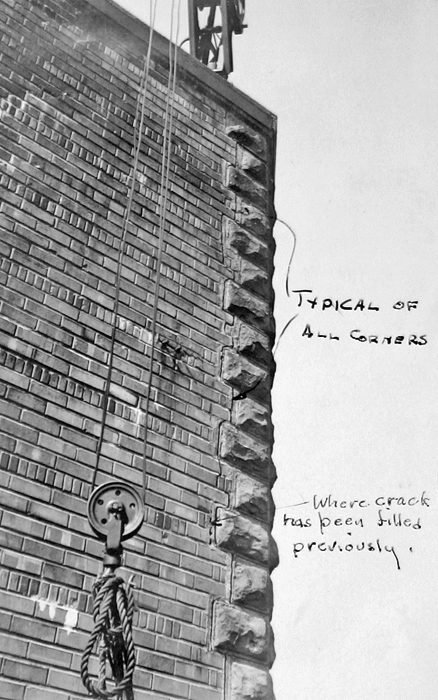 TYPICAL OF
ALL CORNERS
Where crack
has been filled
previously.